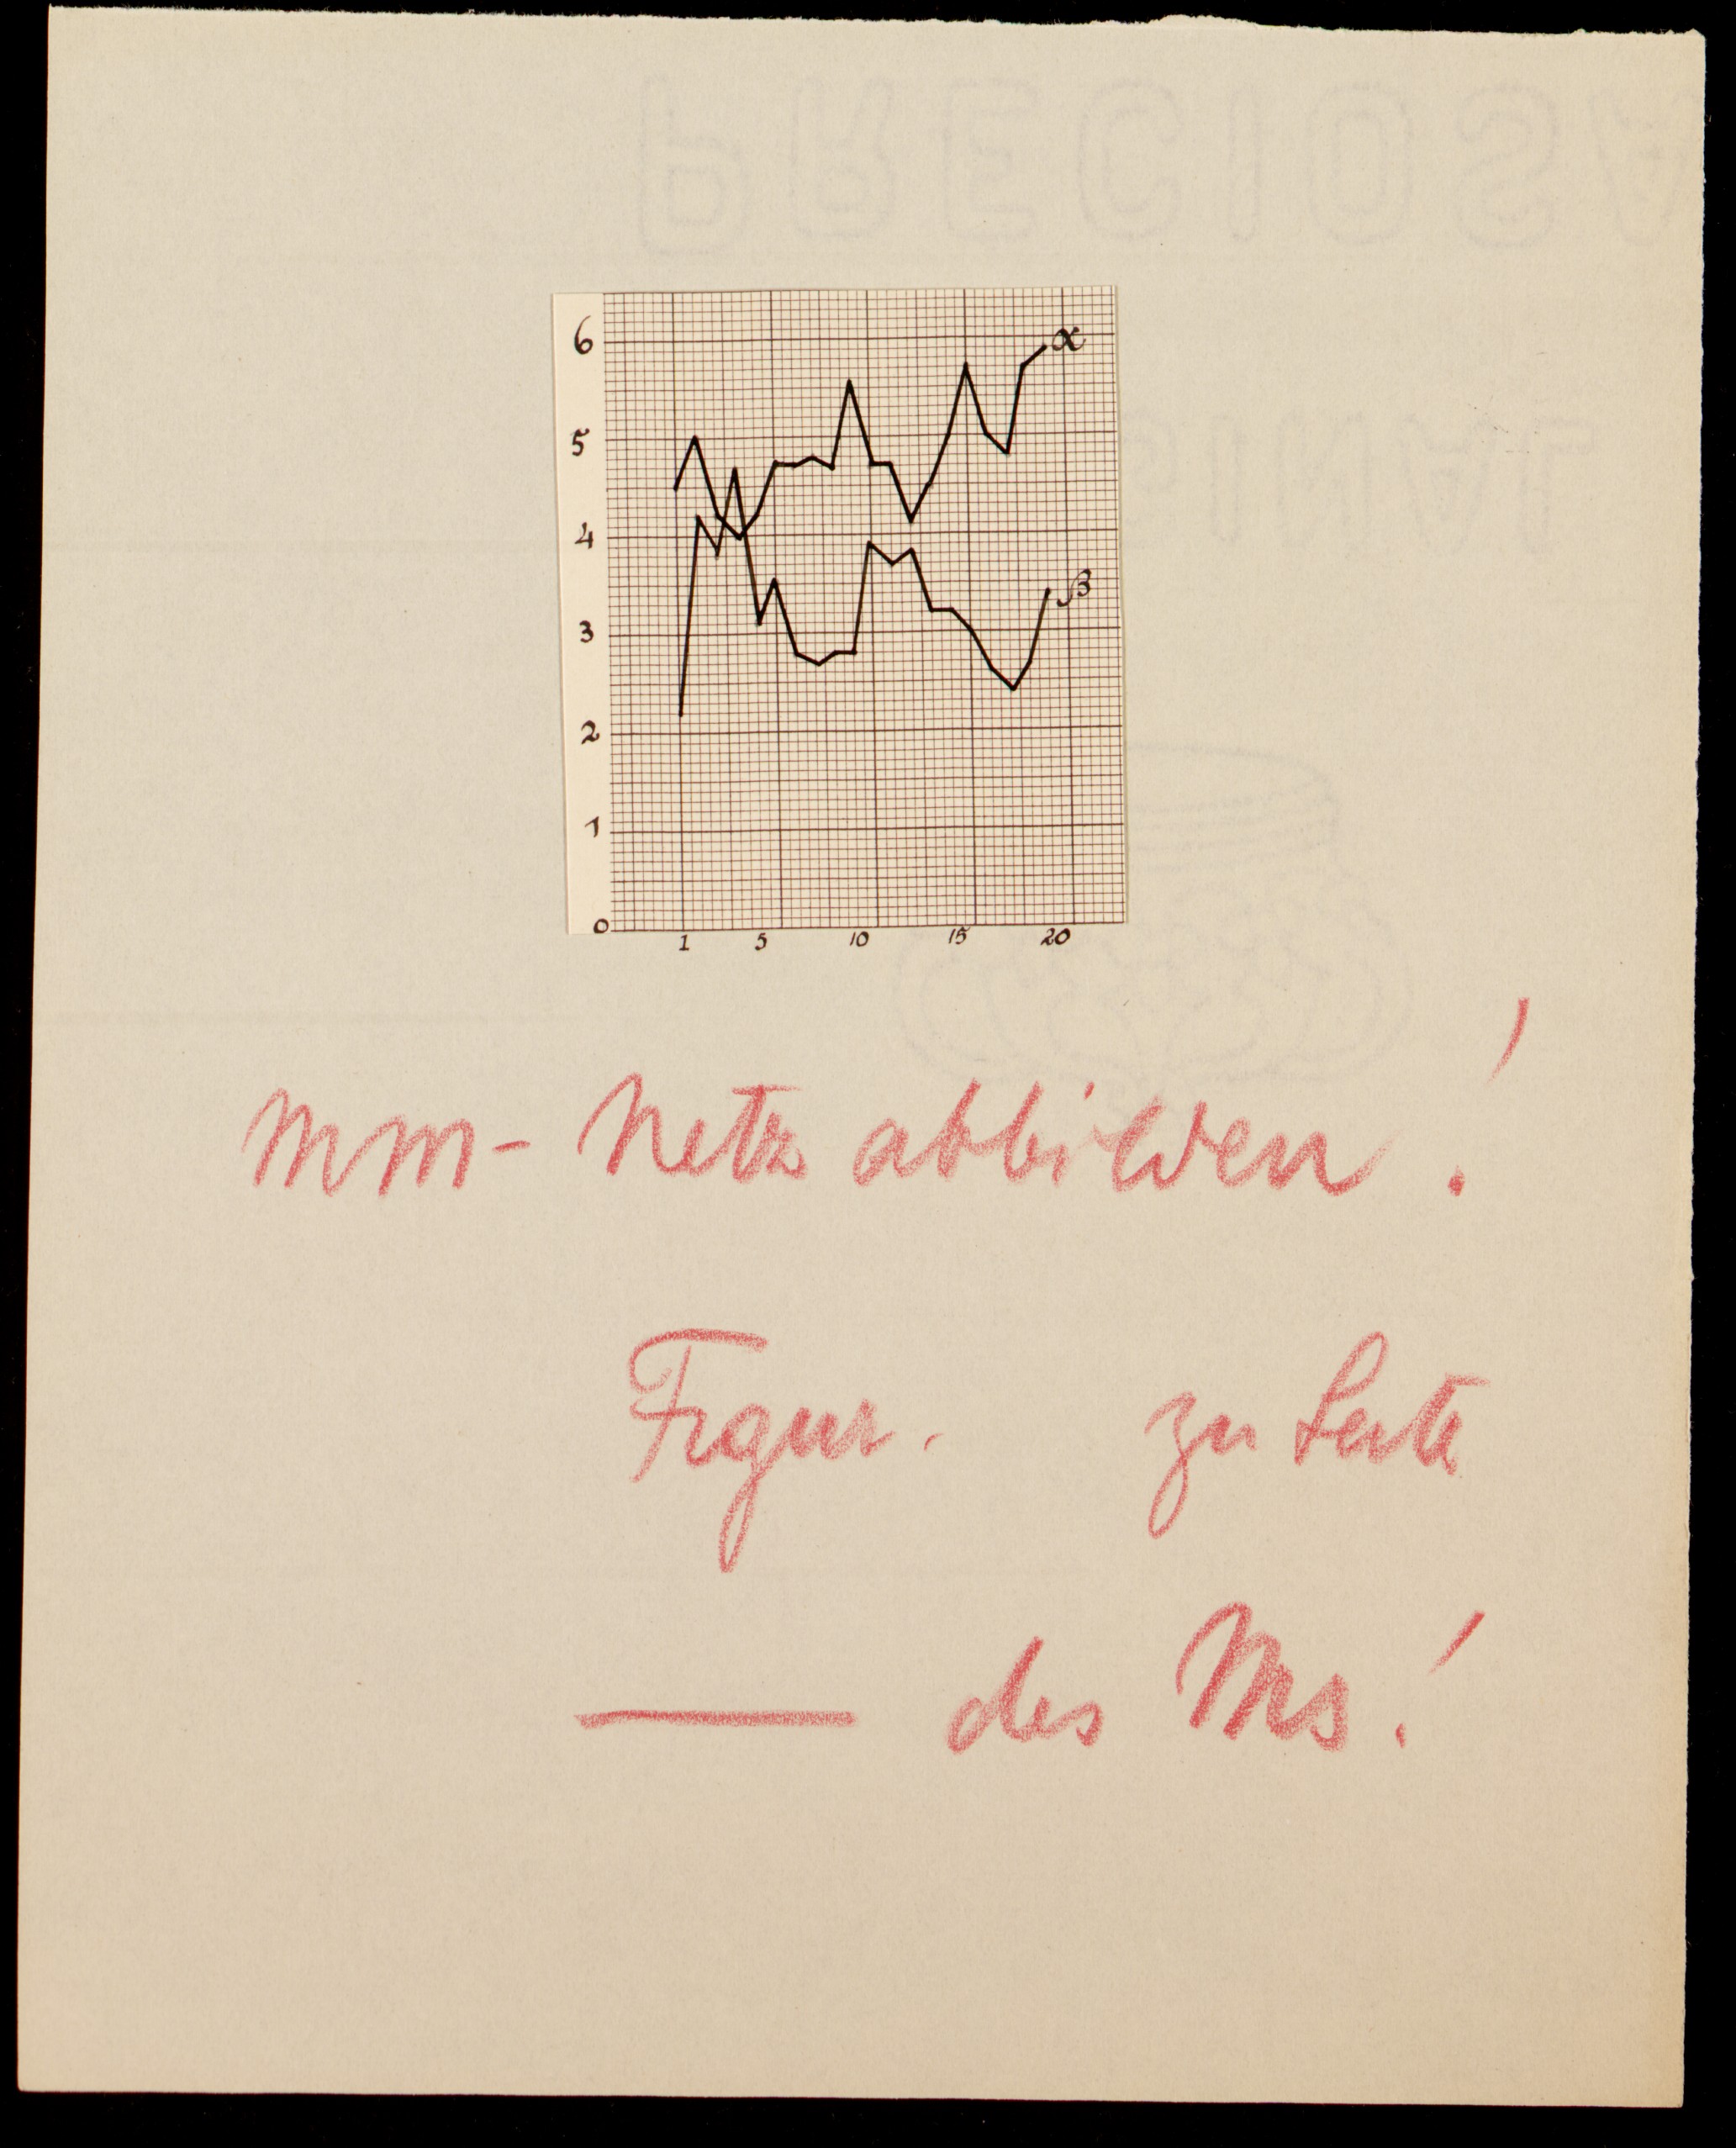 6
5
4
3
2
1
0
1 5 10 15 20
α
β
mm-Netz abbilden!
Figur. zu Seite
des Ms!
PRECIOSA